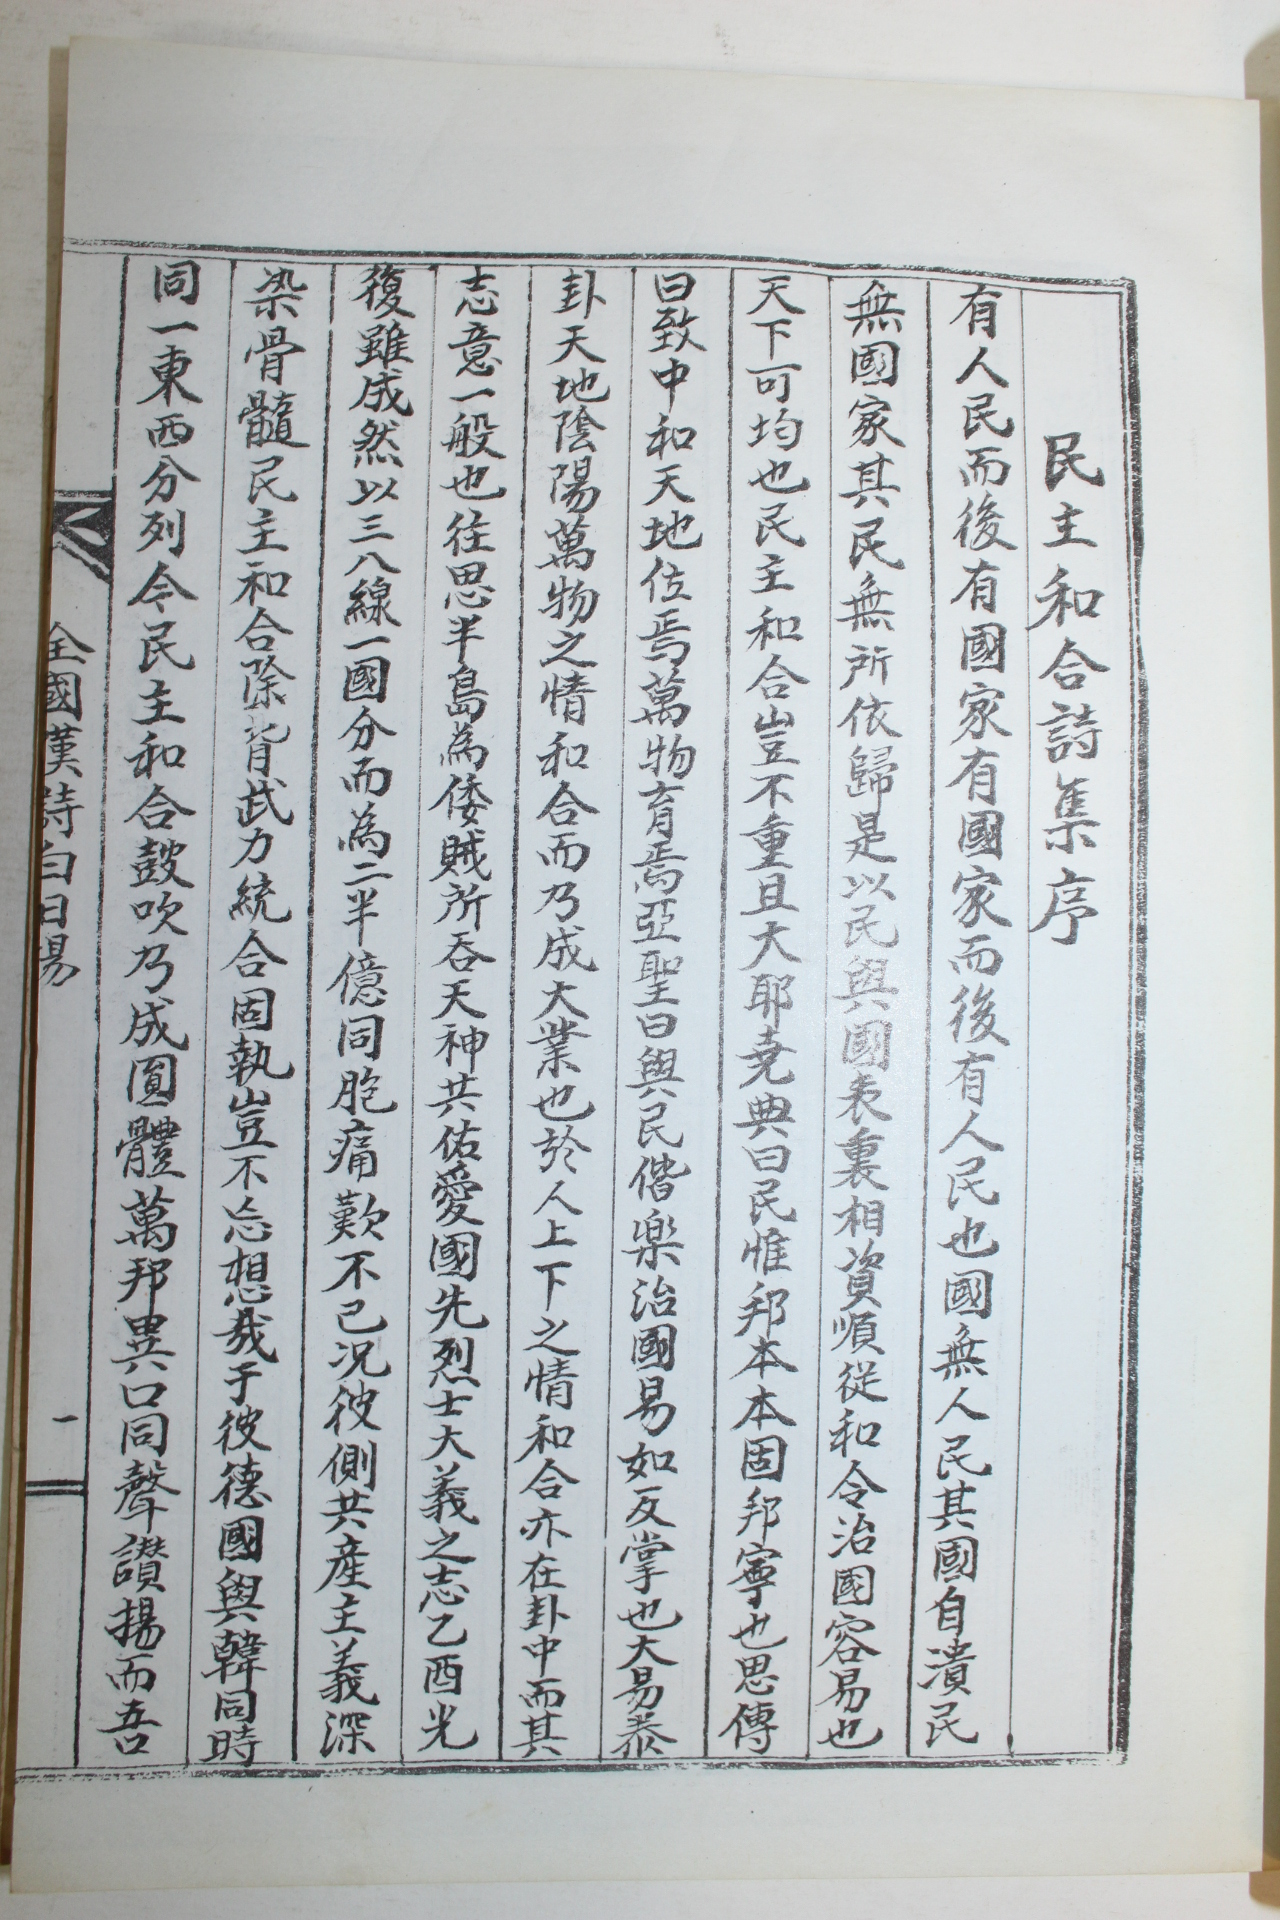 民主和合詩集序
有人民而後有國家有國家而後有人民也國無人民其國自潰民
無國家其民無所依歸是以民與國表裏相資順從和令治國容易也
天下可均也民主和合豈不重且大耶堯典曰民惟邦本本固邦寧也思傳
曰致中和天地位焉萬物育焉亞聖曰與民偕樂治國易如反掌也大易泰
卦天地陰陽萬物之情和合而乃成大業也於人上下之情和合亦在卦中而其
志意一般也往思半島為倭賊所呑天神共佑愛國先烈士大義之志乙酉光
復雖成然以三八線一國分而為二半億同胞痛歎不已況彼側共産主義深
染骨髓民主和合除背武力統合固執豈不忘想哉于彼德國與韓同時
同一東西分列令民主和合鼓吹乃成圓體萬邦異口同聲讃揚而吾
全國漢詩白日場
一